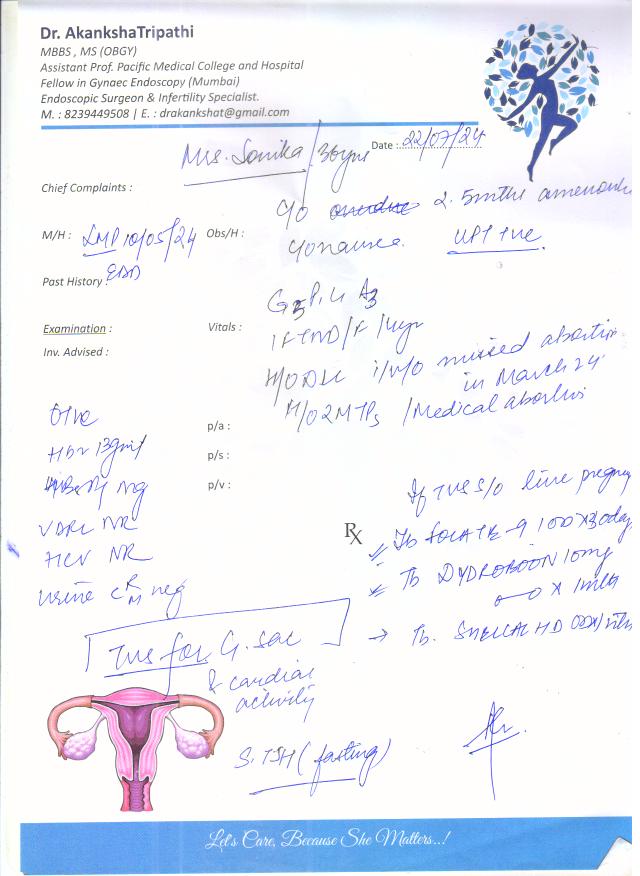 Dr. AkankshaTripathi
MBBS , MS (OBGY)
Assistant Prof. Pacific Medical College and Hospital
Fellow in Gynaec Endoscopy (Mumbai)
Endoscopic Surgeon & Infertility Specialist.
M. : 8239449508 | E. : drakankshat@gmail.com
Mrs. Sonika / 30yrs
Date : 22/07/24
Chief Complaints :
C/o overdue 2.5mths
M/H : LMP 10/05/24
Obs/H :
C/o nausea. UPT +ve.
Past History :
EDD
G5 P1 L1 A3
Examination :
Vitals :
1 FTND/F/
Inv. Advised :
H/O i/v/o missed abortion
in March 24
H/O 2 MTPs / Medical
O+ve
p/a :
Hb 13gm/
p/s :
neg
p/v :
If TVS s/o live pregnancy
VDRL NR
Rx
Tb 100 x 30 days
HCV NR
Tb DYDROBOON 10mg
Urine C R/M neg
x 1mth
TVS for G. sac
→ Tb. SHELCAL HD
& cardiac
activity
S. TSH (fasting)
Let's Care, Because She Matters..!